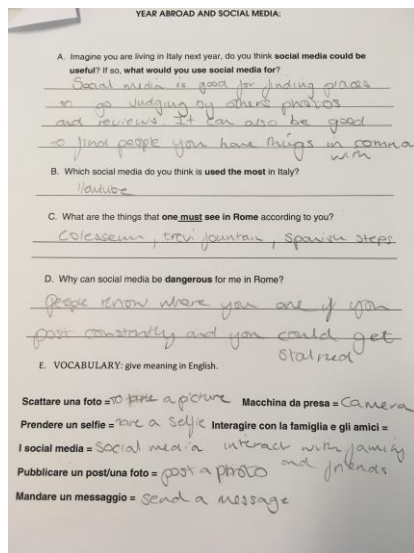 YEAR ABROAD AND SOCIAL MEDIA:
A. Imagine you are living in Italy next year, do you think social media could be
useful? If so, what would you use social media for?
Social media is good for finding places
to go Judging by others photos
and reviews. It can also be good
to find people you have things in common
with
B. Which social media do you think is used the most in Italy?
Youtube
C. What are the things that one must see in Rome according to you?
Colesseum, trevi fountain, Spanish steps
D. Why can social media be dangerous for me in Rome?
People know where you are if you
post constantly and you could get
stalked
E. VOCABULARY: give meaning in English.
Scattare una foto = To take a picture Macchina da presa = Camera
Prendere un selfie = take a selfie Interagire con la famiglia e gli amici =
I social media = Social media interact with family
and friends
Pubblicare un post/una foto = post a photo
Mandare un messaggio = send a message